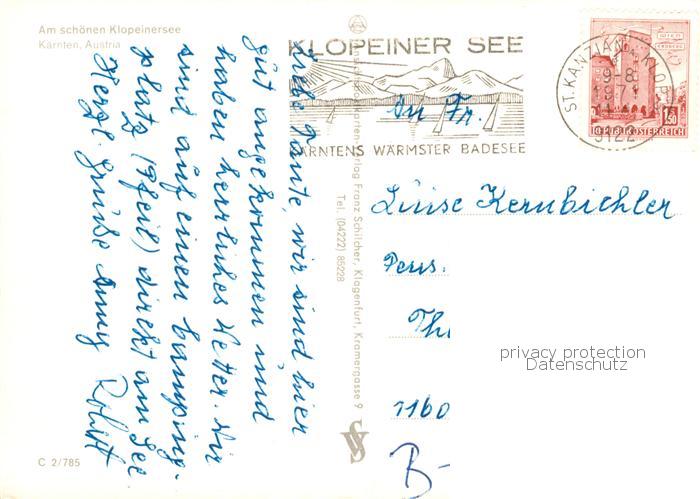 Am schönen Klopeinersee
Kärnten, Austria
Liebe Tante, wir sind hier
gut angekommen und
haben herrliches Wetter. Wir
sind auf einen Camping-
platz (Pfeil) direkt am See
Herzl. Grüße
C 2/785
Verlag Franz Schilcher, Klagenfurt, Kramergasse 9
Tel. (04222) 85228
KLOPEINER SEE
KÄRNTENS WÄRMSTER BADESEE
ST. KANZIAN
9-8
1971
9122
1.50
REPUBLIK ÖSTERREICH
An Fr.
Luise Kernbichler
Pens.
Th
1160
B-
privacy protection
Datenschutz